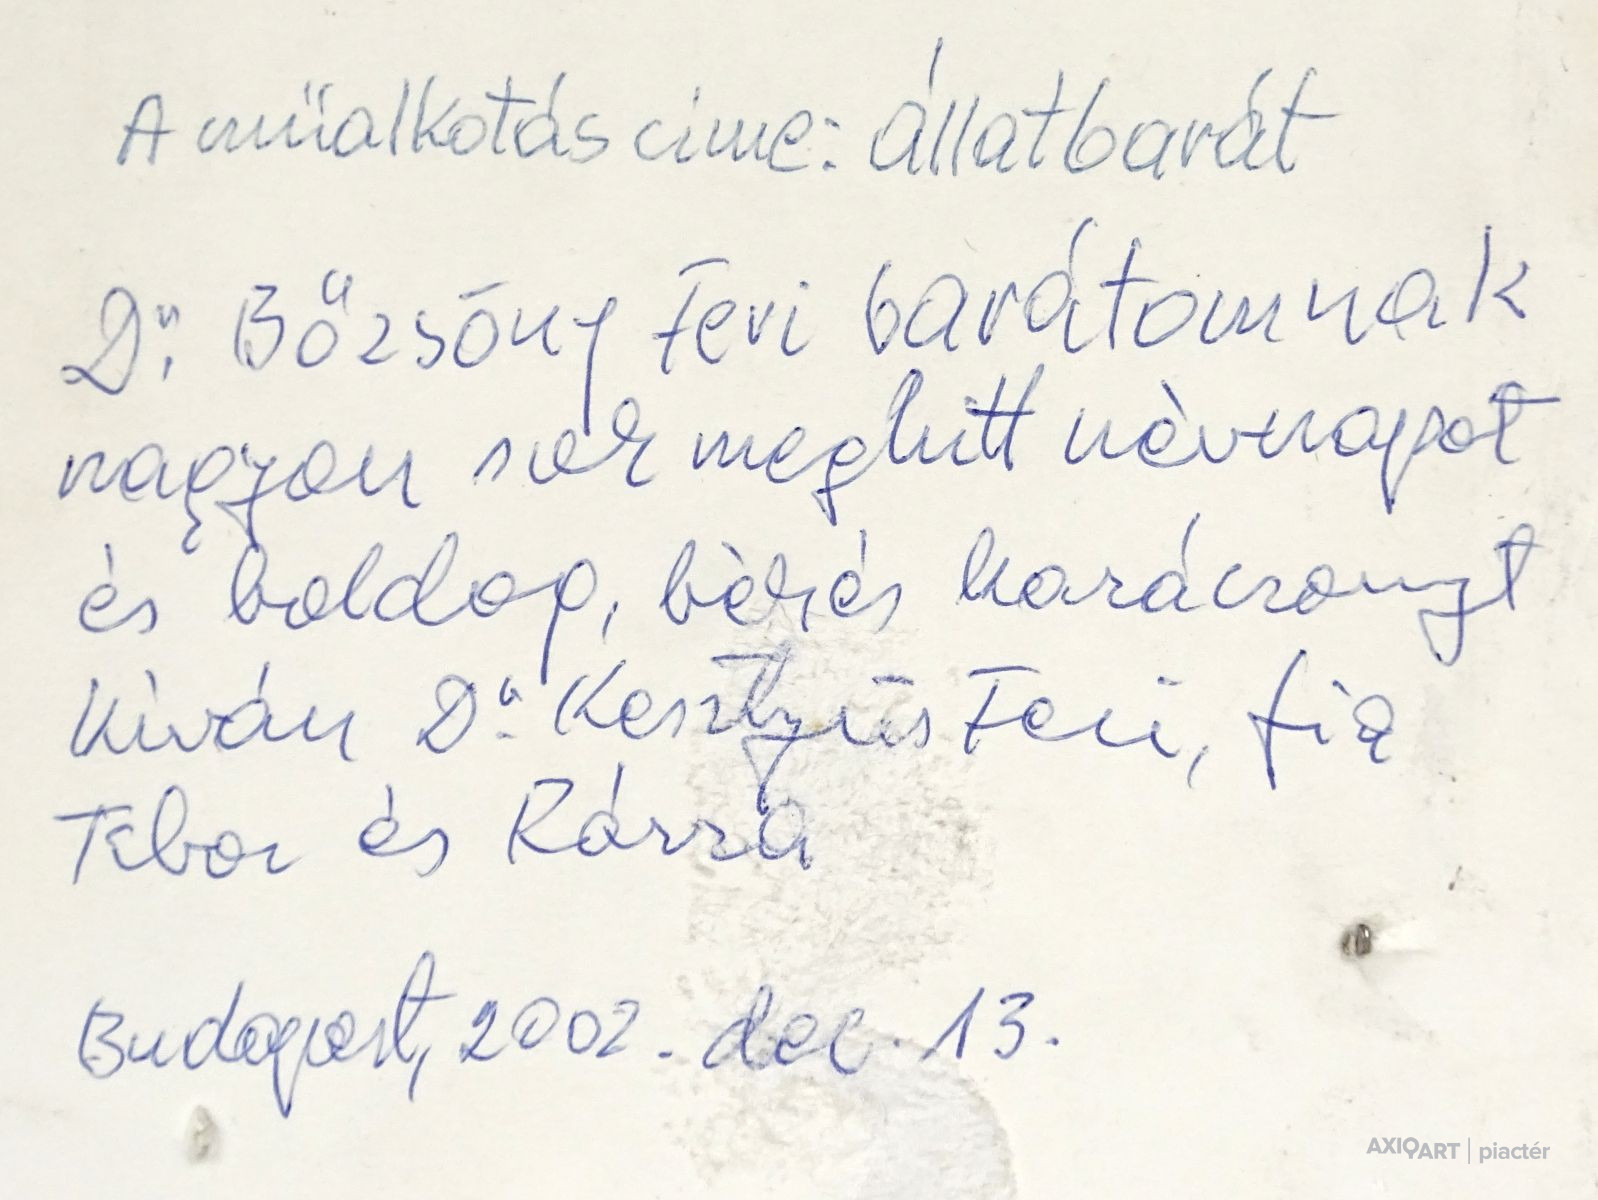 A műalkotás cime: állatbarát
Dr. Bőzsöny Feri barátomnak
nagyon sok meghitt névnapot
és boldog, békés karácsonyt
kíván Dr. Kesztyüs Feri, fia
Tibor és Rózsa
Budapest, 2002. dec. 13.
AXIOART | piactér